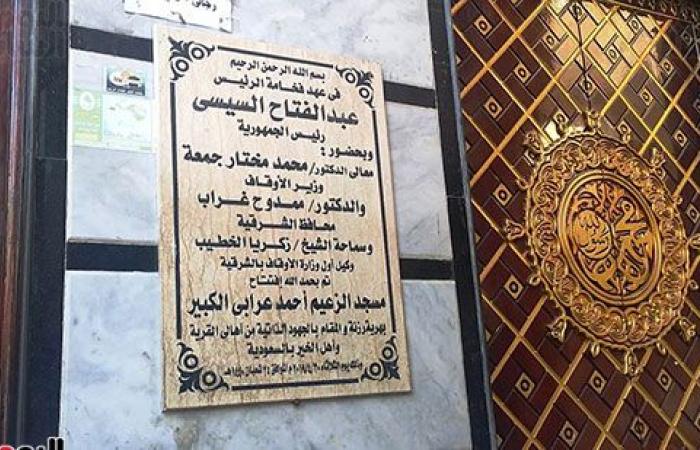 بسم الله الرحمن الرحيم
فى عهد فخامة الرئيس
عبد الفتاح السيسى
رئيس الجمهورية
وبحضور :
معالى الدكتور/ محمد مختار جمعة
وزير الأوقاف
والدكتور/ ممدوح غراب
محافظ الشرقية
وسماحة الشيخ / زكريا الخطيب
وكيل أول وزارة الأوقاف بالشرقية
تم بحمد الله إفتتاح
مسجد الزعيم أحمد عرابى الكبير
بهرية رزنة و المقام بالجهود الذاتية من أهالى القرية
وأهل الخير بالسعودية
وذلك يوم الثلاثاء